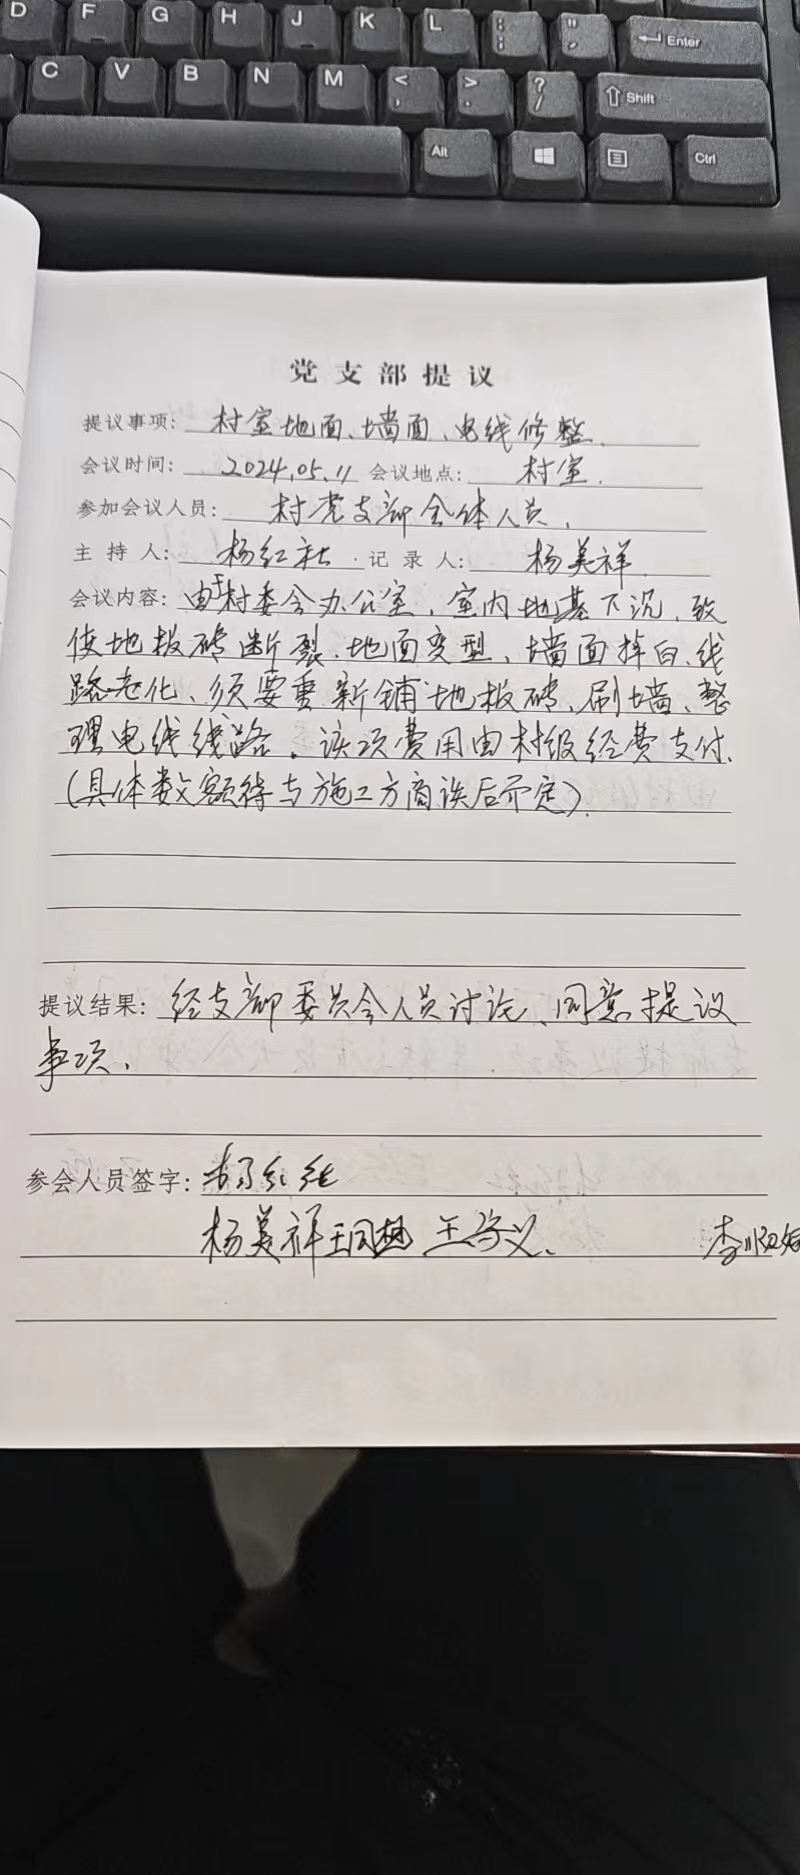 D F G H J K L : ; " ' Enter
C V B N M < , > . ? / Shift
Alt Ctrl
党支部提议
提议事项: 村室地面、墙面、电线修整.
会议时间: 2024.05.11 会议地点: 村室.
参加会议人员: 村党支部全体人员.
主持人: 杨红社 记录人: 杨美祥
会议内容: 由于村委会办公室、室内地基下沉、致
使地板砖断裂.地面变型、墙面掉白、线
路老化、须要重新铺地板砖、刷墙、整
理电线线路。该项费用由村级经费支付.
(具体数额待与施工方商谈后而定).
提议结果: 经支部委员会人员讨论、同意提议
事项.
参会人员签字: 杨红社
杨美祥 王守义、